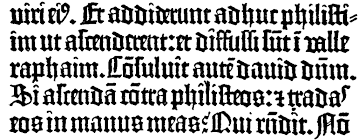 viri ei⁹. Et addiderunt adhuc philisti⸗
im ut ascenderent: et diffusi sūt ī valle
raphaim. Cōsuluit autē david dn̄m.
Si ascendā cōtra philisteos: ⁊ tradas
eos in manus meas? Qui rn̄dit. Nō